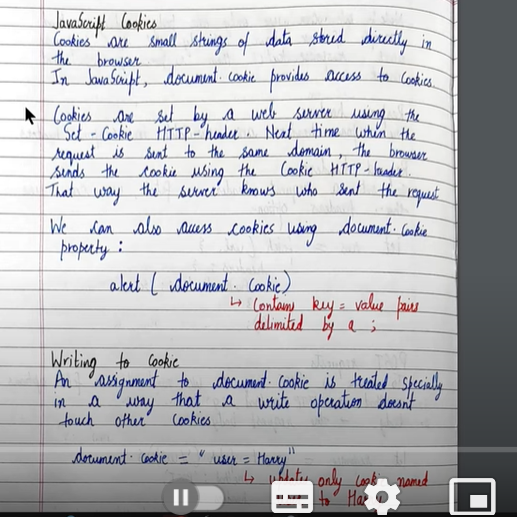 JavaScript Cookies
Cookies are small strings of data stored directly in
the browser
In JavaScript, document.cookie provides access to Cookies.
Cookies are set by a web server using the
Set-Cookie HTTP-header. Next time when the
request is sent to the same domain, the browser
sends the cookie using the Cookie HTTP-header.
That way the server knows who sent the request
We can also access cookies using document.cookie
property :
alert ( document.cookie)
↳ Contain key = value pairs
delimited by a ;
Writing to Cookie
An assignment to document.cookie is treated specially
in a way that a write operation doesnt
touch other Cookies
document.cookie = "user = Harry"
↳ updates only cookie named
to